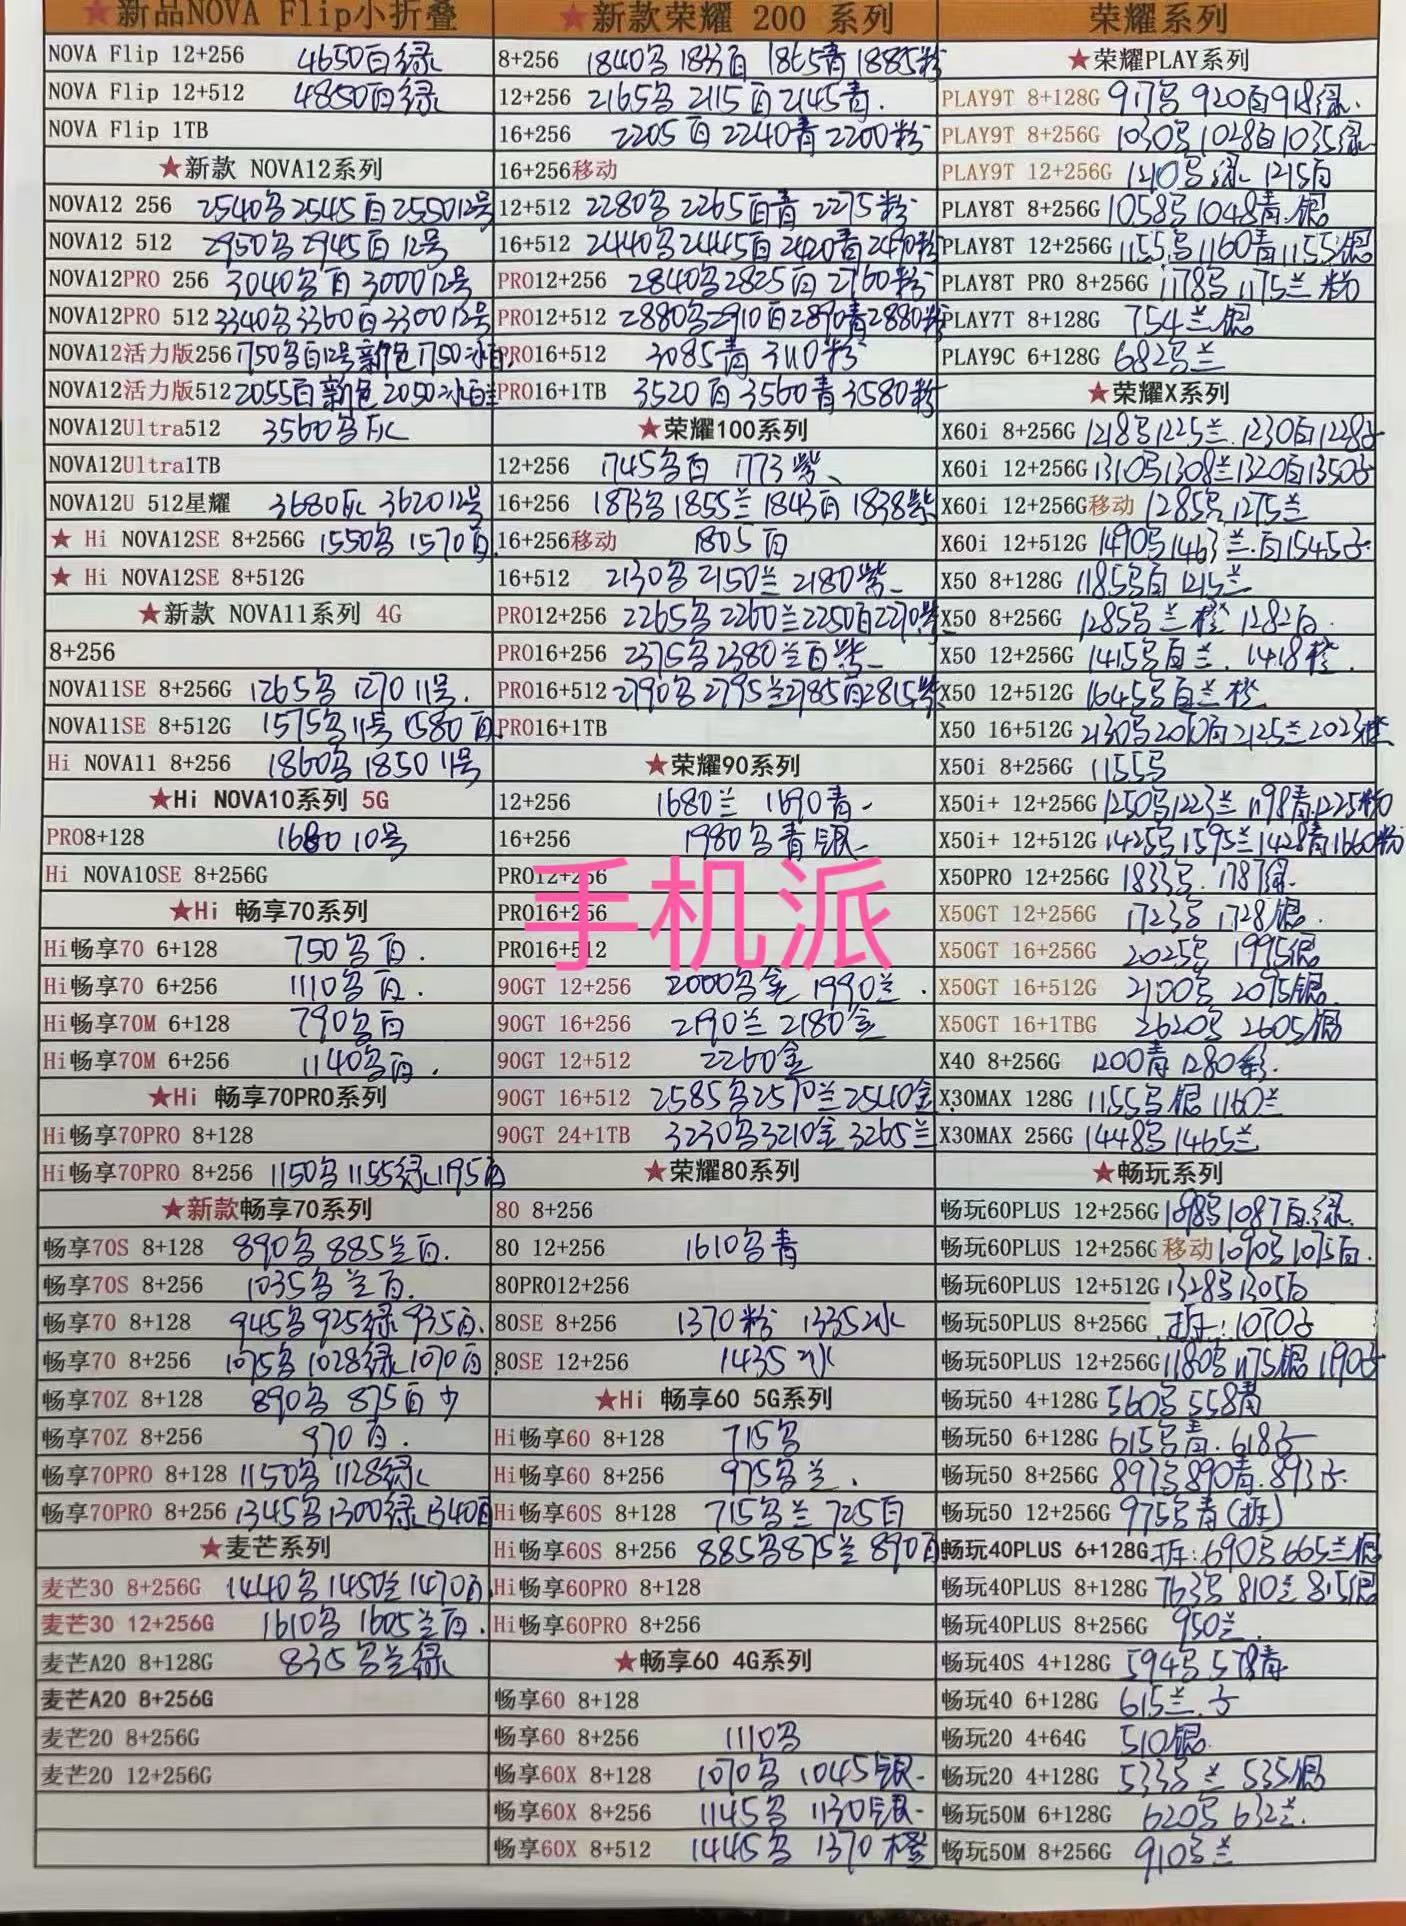 ★新品NOVA Flip小折叠
NOVA Flip 12+256 4650白绿
NOVA Flip 12+512 4850白绿
NOVA Flip 1TB
★新款 NOVA12系列
NOVA12 256 2540为2545白255012号
NOVA12 512 2950为2945白12号
NOVA12PRO 256 3040为白300012号
NOVA12PRO 512 3340为3360白330012号
NOVA12活力版256 1750为白12号新色1750冰白
NOVA12活力版512 2055白新色2050冰白
NOVA12Ultra512 3560为灰
NOVA12Ultra1TB
NOVA12U 512星耀 3680灰362012号
★ Hi NOVA12SE 8+256G 1550为1570白
★ Hi NOVA12SE 8+512G
★新款 NOVA11系列 4G
8+256
NOVA11SE 8+256G 1265为127011号.
NOVA11SE 8+512G 1575为11号1580白
Hi NOVA11 8+256 1860为185011号
★Hi NOVA10系列 5G
PRO8+128 168010号
Hi NOVA10SE 8+256G
★Hi 畅享70系列
Hi畅享70 6+128 750为白.
Hi畅享70 6+256 1110为白.
Hi畅享70M 6+128 790为白
Hi畅享70M 6+256 1140为白.
★Hi 畅享70PRO系列
Hi畅享70PRO 8+128
Hi畅享70PRO 8+256 1150为1155绿1195白
★新款畅享70系列
畅享70S 8+128 890为885兰白.
畅享70S 8+256 1035为兰白.
畅享70 8+128 945为925绿935白.
畅享70 8+256 1075为1028绿1070白
畅享70Z 8+128 890为875白少
畅享70Z 8+256 970白.
畅享70PRO 8+128 1150为1128绿
畅享70PRO 8+256 1345为1300绿1340白
★麦芒系列
麦芒30 8+256G 1440为1450兰1470白
麦芒30 12+256G 1610为1605兰白.
麦芒A20 8+128G 835为兰绿
麦芒A20 8+256G
麦芒20 8+256G
麦芒20 12+256G
★新款荣耀 200 系列
8+256 1840为1833白1865青1885粉
12+256 2165为2115白2145青.
16+256 2205白2240青2200粉
16+256移动
12+512 2280为2265白青2275粉
16+512 2440为2445白2420青2490粉
PRO12+256 2840为2825白2760粉
PRO12+512 2880为2910白2890青2880粉
PRO16+512 3085青3110粉
PRO16+1TB 3520白3560青3580粉
★荣耀100系列
12+256 1745为白1773紫
16+256 1873为1855兰1843白1838紫
16+256移动 1805白
16+512 2130为2150兰2180紫
PRO12+256 2265为2260兰2250白2270紫
PRO16+256 2375为2380兰白紫
PRO16+512 2790为2795兰2785白2815紫
PRO16+1TB
★荣耀90系列
12+256 1680兰1690青
16+256 1980为青银
PRO12+256
PRO16+256
PRO16+512
手机派
90GT 12+256 2000为金1990兰.
90GT 16+256 2190兰2180金
90GT 12+512 2260金
90GT 16+512 2585为2570兰2540金
90GT 24+1TB 3230为3210金3265兰
★荣耀80系列
80 8+256
80 12+256 1610为青
80PRO12+256
80SE 8+256 1370粉1335冰
80SE 12+256 1435冰
★Hi 畅享60 5G系列
Hi畅享60 8+128 715为
Hi畅享60 8+256 975为兰.
Hi畅享60S 8+128 715为兰725白
Hi畅享60S 8+256 885为875兰890白
Hi畅享60PRO 8+128
Hi畅享60PRO 8+256
★畅享60 4G系列
畅享60 8+128
畅享60 8+256 1110为
畅享60X 8+128 1070为1045银
畅享60X 8+256 1145为1130银
畅享60X 8+512 1445为1370橙
荣耀系列
★荣耀PLAY系列
PLAY9T 8+128G 917为920白918绿.
PLAY9T 8+256G 1030为1028白1035绿
PLAY9T 12+256G 1210为绿1215白
PLAY8T 8+256G 1058为1048青.银
PLAY8T 12+256G 1155为1160青1155银
PLAY8T PRO 8+256G 1178为1175兰粉
PLAY7T 8+128G 754兰银
PLAY9C 6+128G 682为兰
★荣耀X系列
X60i 8+256G 1218为1225兰.1230白1228子
X60i 12+256G 1310为1308兰1320白1350子
X60i 12+256G移动 1285为1275兰
X60i 12+512G 1490为1463兰.白1545子
X50 8+128G 1185为白1215兰
X50 8+256G 1285为兰橙1282白.
X50 12+256G 1415为白兰.1418橙.
X50 12+512G 1645为白兰橙
X50 16+512G 2130为2010白2125兰2023橙
X50i 8+256G 1155为
X50i+ 12+256G 1250为1223兰1198青.1225粉
X50i+ 12+512G 1425为1595兰1428青1660粉
X50PRO 12+256G 1833为.1787绿.
X50GT 12+256G 1723为1728银.
X50GT 16+256G 2025为1995银
X50GT 16+512G 2100为2075银
X50GT 16+1TBG 2620为2605银
X40 8+256G 1200青1280彩.
X30MAX 128G 1155为银1160兰
X30MAX 256G 1448为1465兰
★畅玩系列
畅玩60PLUS 12+256G 1098为1087白.绿.
畅玩60PLUS 12+256G移动 1090为1075白.
畅玩60PLUS 12+512G 1328为1305白
畅玩50PLUS 8+256G 拆:1070子
畅玩50PLUS 12+256G 1180为1175银1190子
畅玩50 4+128G 560为558青
畅玩50 6+128G 615为青.618子
畅玩50 8+256G 897为890青.893子
畅玩50 12+256G 975为青(拆)
畅玩40PLUS 6+128G 拆:690为665兰银
畅玩40PLUS 8+128G 763为810兰815银
畅玩40PLUS 8+256G 950兰.
畅玩40S 4+128G 594为578青
畅玩40 6+128G 615兰.子
畅玩20 4+64G 510银.
畅玩20 4+128G 533为兰535银
畅玩50M 6+128G 620为632兰.
畅玩50M 8+256G 910为兰